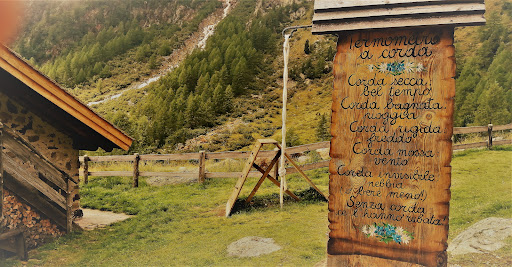 Termometro
a corda
Corda secca,
bel tempo
Corda bagnata,
pioggia
Corda rigida
freddo
Corda mossa
vento
Corda invisibile
nebbia
Senza corda